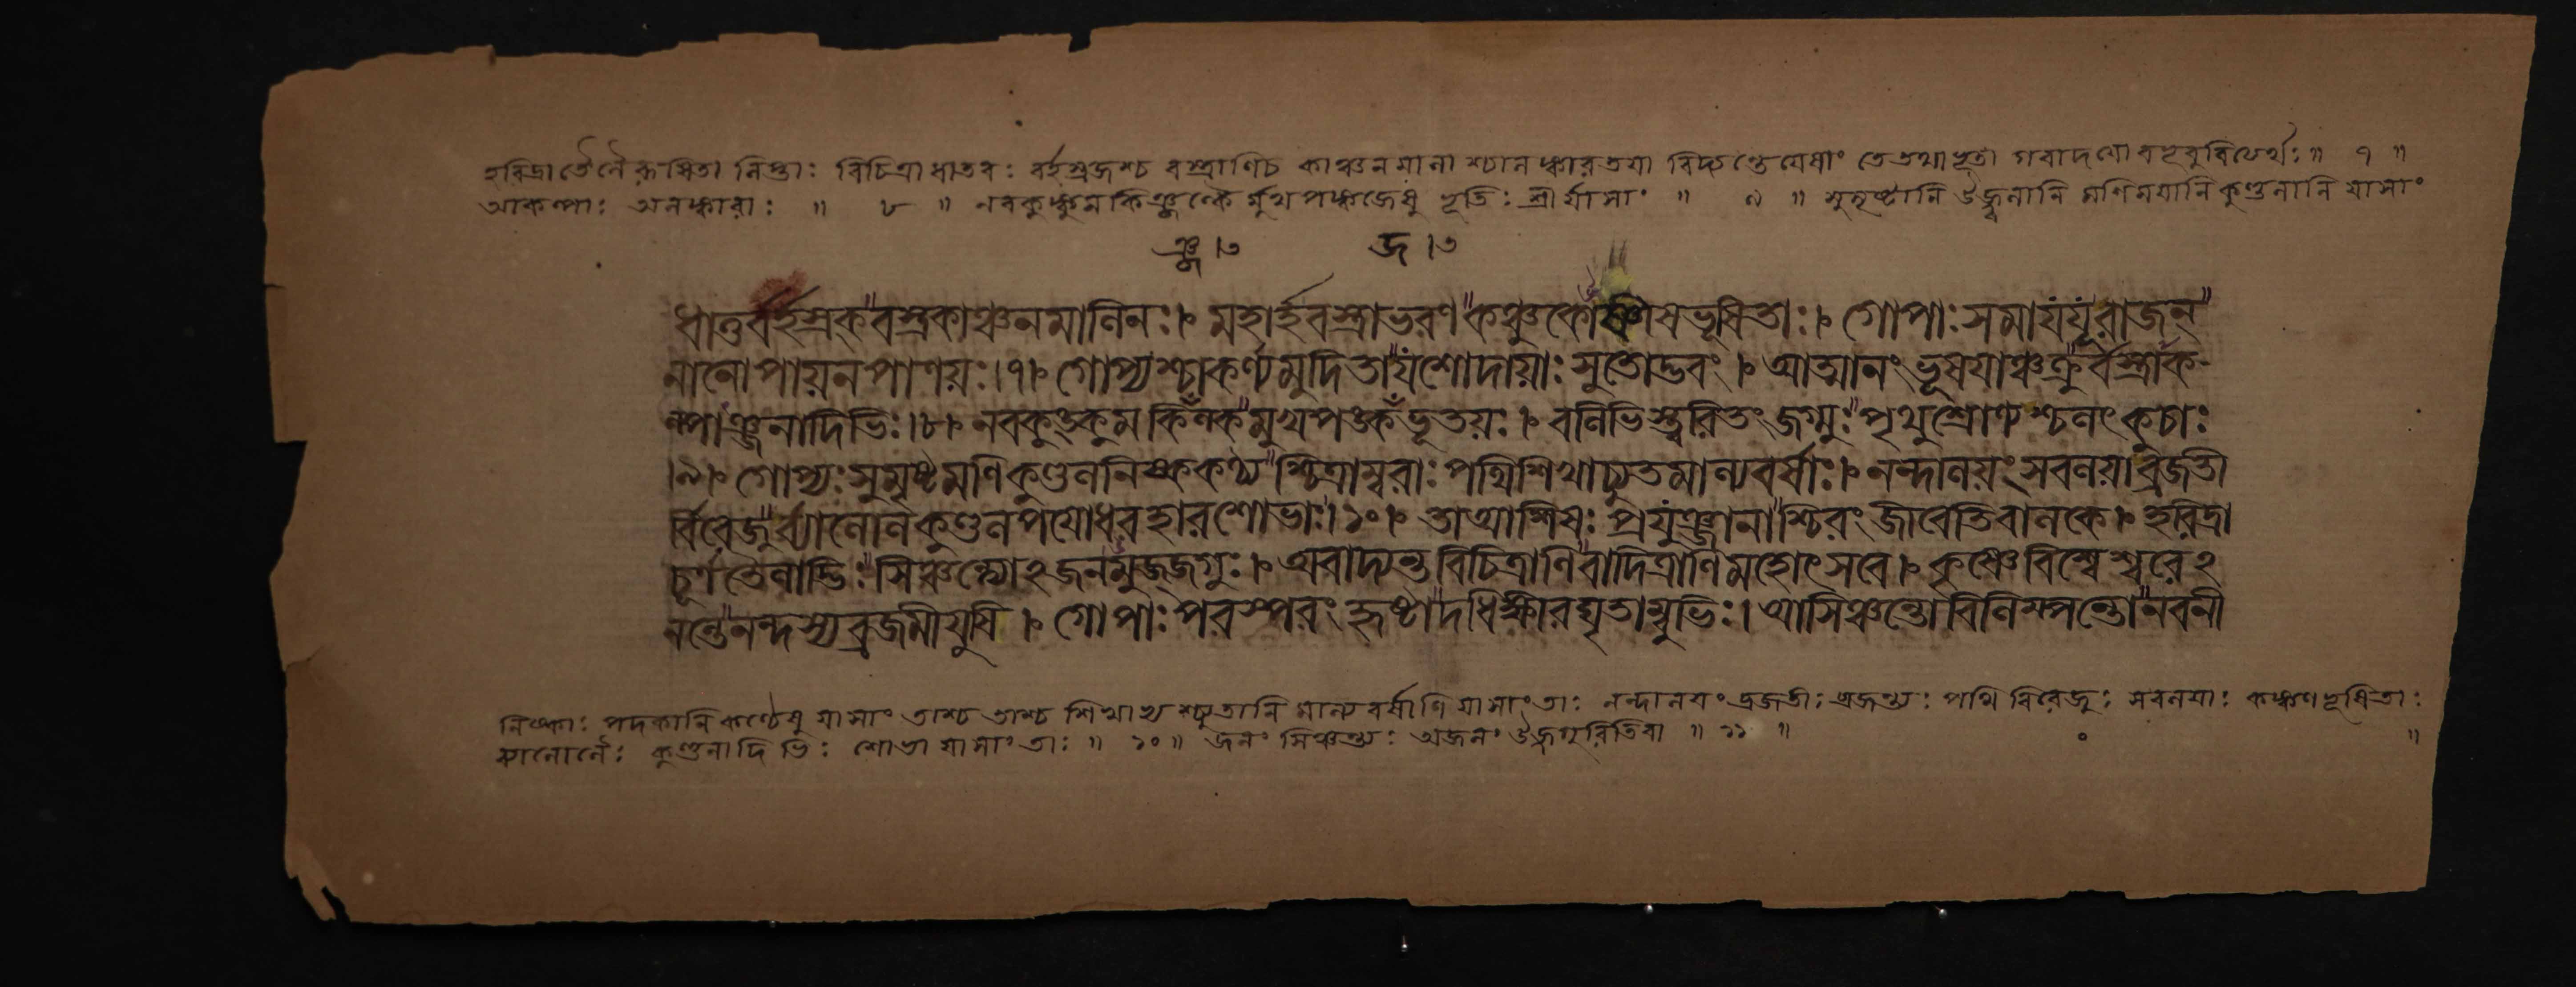 হরিদ্রাতৈলৈরুক্ষিতা লিপ্তাঃ বিচিত্রা ধাতবঃ বর্হস্রজশ্চ বস্ত্রাণিচ কাঞ্চনমালা শ্চালঙ্কারতয়া বিদ্যন্তেযেষাং তেতথাভূতা গাবাদয়ো বভূবুরিত্যর্থঃ॥ ৭ ॥
আকল্পাঃ অলঙ্কারাঃ ॥ ৮ ॥ নবকুঙ্কুমকিঞ্জল্কৈ র্মুখপঙ্কজেষু ভূতিঃ শ্রীর্যাসাং ॥ ৯ ॥ সুমৃষ্টানি উজ্জ্বলানি মণিময়ানি কুণ্ডলানি যাসাং
ঞ্জ।৩ জ।৩
ধাতুবর্হস্রক্ বস্ত্রকাঞ্চনমালিনঃ।৮ মহার্হবস্ত্রাভরণ কঞ্চুকোষ্ণীষভূষিতাঃ।৮ গোপাঃ সমাযযূ রাজন্
নানোপায়নপাণয়ঃ।৭।৮ গোপ্যশ্চাকর্ণ্যমুদিতা যশোদায়াঃ সুতোদ্ভবং।৮ আত্মানং ভূষয়াঞ্চক্রু র্বস্ত্রাক-
ল্পাঞ্জনাদিভিঃ।৮।৮ নবকুঙ্কুমকিঁল্ক মুখপঙ্কঁভূতয়ঃ।৮ বলিভিস্ত্বরিতং জগ্মুঃ পৃথুশ্রোণ্যশ্চলৎকুচাঃ
।৯।৮ গোপ্যঃ সুমৃষ্টমণিকুণ্ডলনিষ্ককণ্ঠ্য শ্চিত্রাম্বরাঃ পথিশিখাচ্যুতমাল্যবর্ষাঃ।৮ নন্দালয়ং সবলয়া ব্রজতী
র্বিরেজু র্ব্যালোলকুণ্ডলপয়োধরহারশোভাঃ।১০।৮ তা আশিষঃ প্রযুঞ্জানা শ্চিরং জীবেতিবালকে।৮ হরিদ্রা
চূর্ণতৈলাদ্ভিঃ সিঞ্চন্ত্যোঽজনমুজ্জগুঃ।৮ অবাদ্যন্ত বিচিত্রাণি বাদিত্রাণি মহোৎসবে।৮ কৃষ্ণে বিশ্বেশ্বরেঽ
নন্তে নন্দস্য ব্রজমীয়ুষি।৮ গোপাঃ পরস্পরং হৃষ্টা দধিক্ষীরঘৃতাম্বুভিঃ। আসিঞ্চন্তো বিলিম্পন্তো নবনী
নিষ্কাঃ পদকানি কণ্ঠেষু যাসাং তাশ্চ তাশ্চ শিখাভ্য শ্চ্যুতানি মাল্যবর্ষাণি যাসাং তাঃ নন্দালয়ং ব্রজতীঃ ব্রজন্ত্যঃ পথি বিরেজুঃ সবলয়াঃ কঙ্কণভূষিতাঃ
ব্যালোলৈঃ কুণ্ডলাদিভিঃ শোভা যাসাং তাঃ ॥ ১০ ॥ জনং সিঞ্চন্ত্যঃ অজনং উজ্জগুরিতিবা ॥ ১১ ॥ ॥